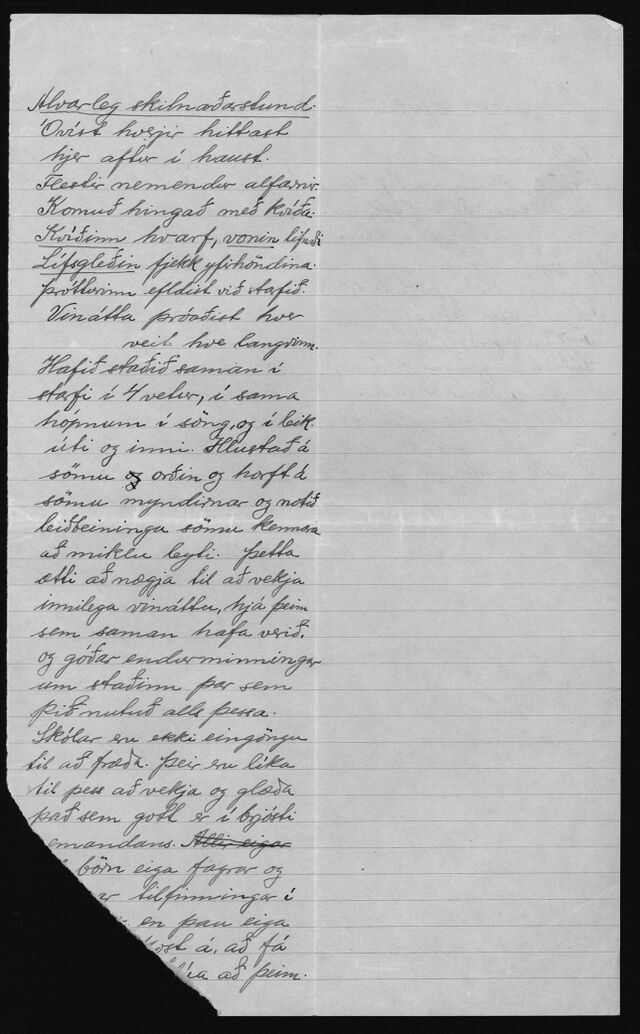 Alvarleg skilnaðarstund.
Óvíst hverjir hittast
hjer aftur í haust.
Flestir nemendur alfarnir.
Komuð hingað með kvíða.
Kvíðinn hvarf, vonin lifnaði
Lífsgleðin fjekk yfirhöndina.
Þrótturinn efldist við starfið.
Vinátta þróaðist hver
veit hve langvinn.
Hafið staðið saman í
starfi í 4 vetur, í sama
hópnum í söng, og í leik.
úti og inni. Hlustað á
sömu orðin og horft á
sömu myndirnar og notið
leiðbeininga sömu kennara
að miklu leyti. Þetta
ætti að nægja til að vekja
innilega vináttu, hjá þeim
sem saman hafa verið,
og góðar endurminningar
um staðinn þar sem
þið nutuð alls þessa.
Skólar eru ekki eingöngu
til að fræða. Þeir eru líka
til þess að vekja og glæða
það sem gott er í brjósti
emandans. Allir eigar
börn eiga fagrar og
ar tilfinningar í
en þau eiga
kost á, að fá
að þeim.